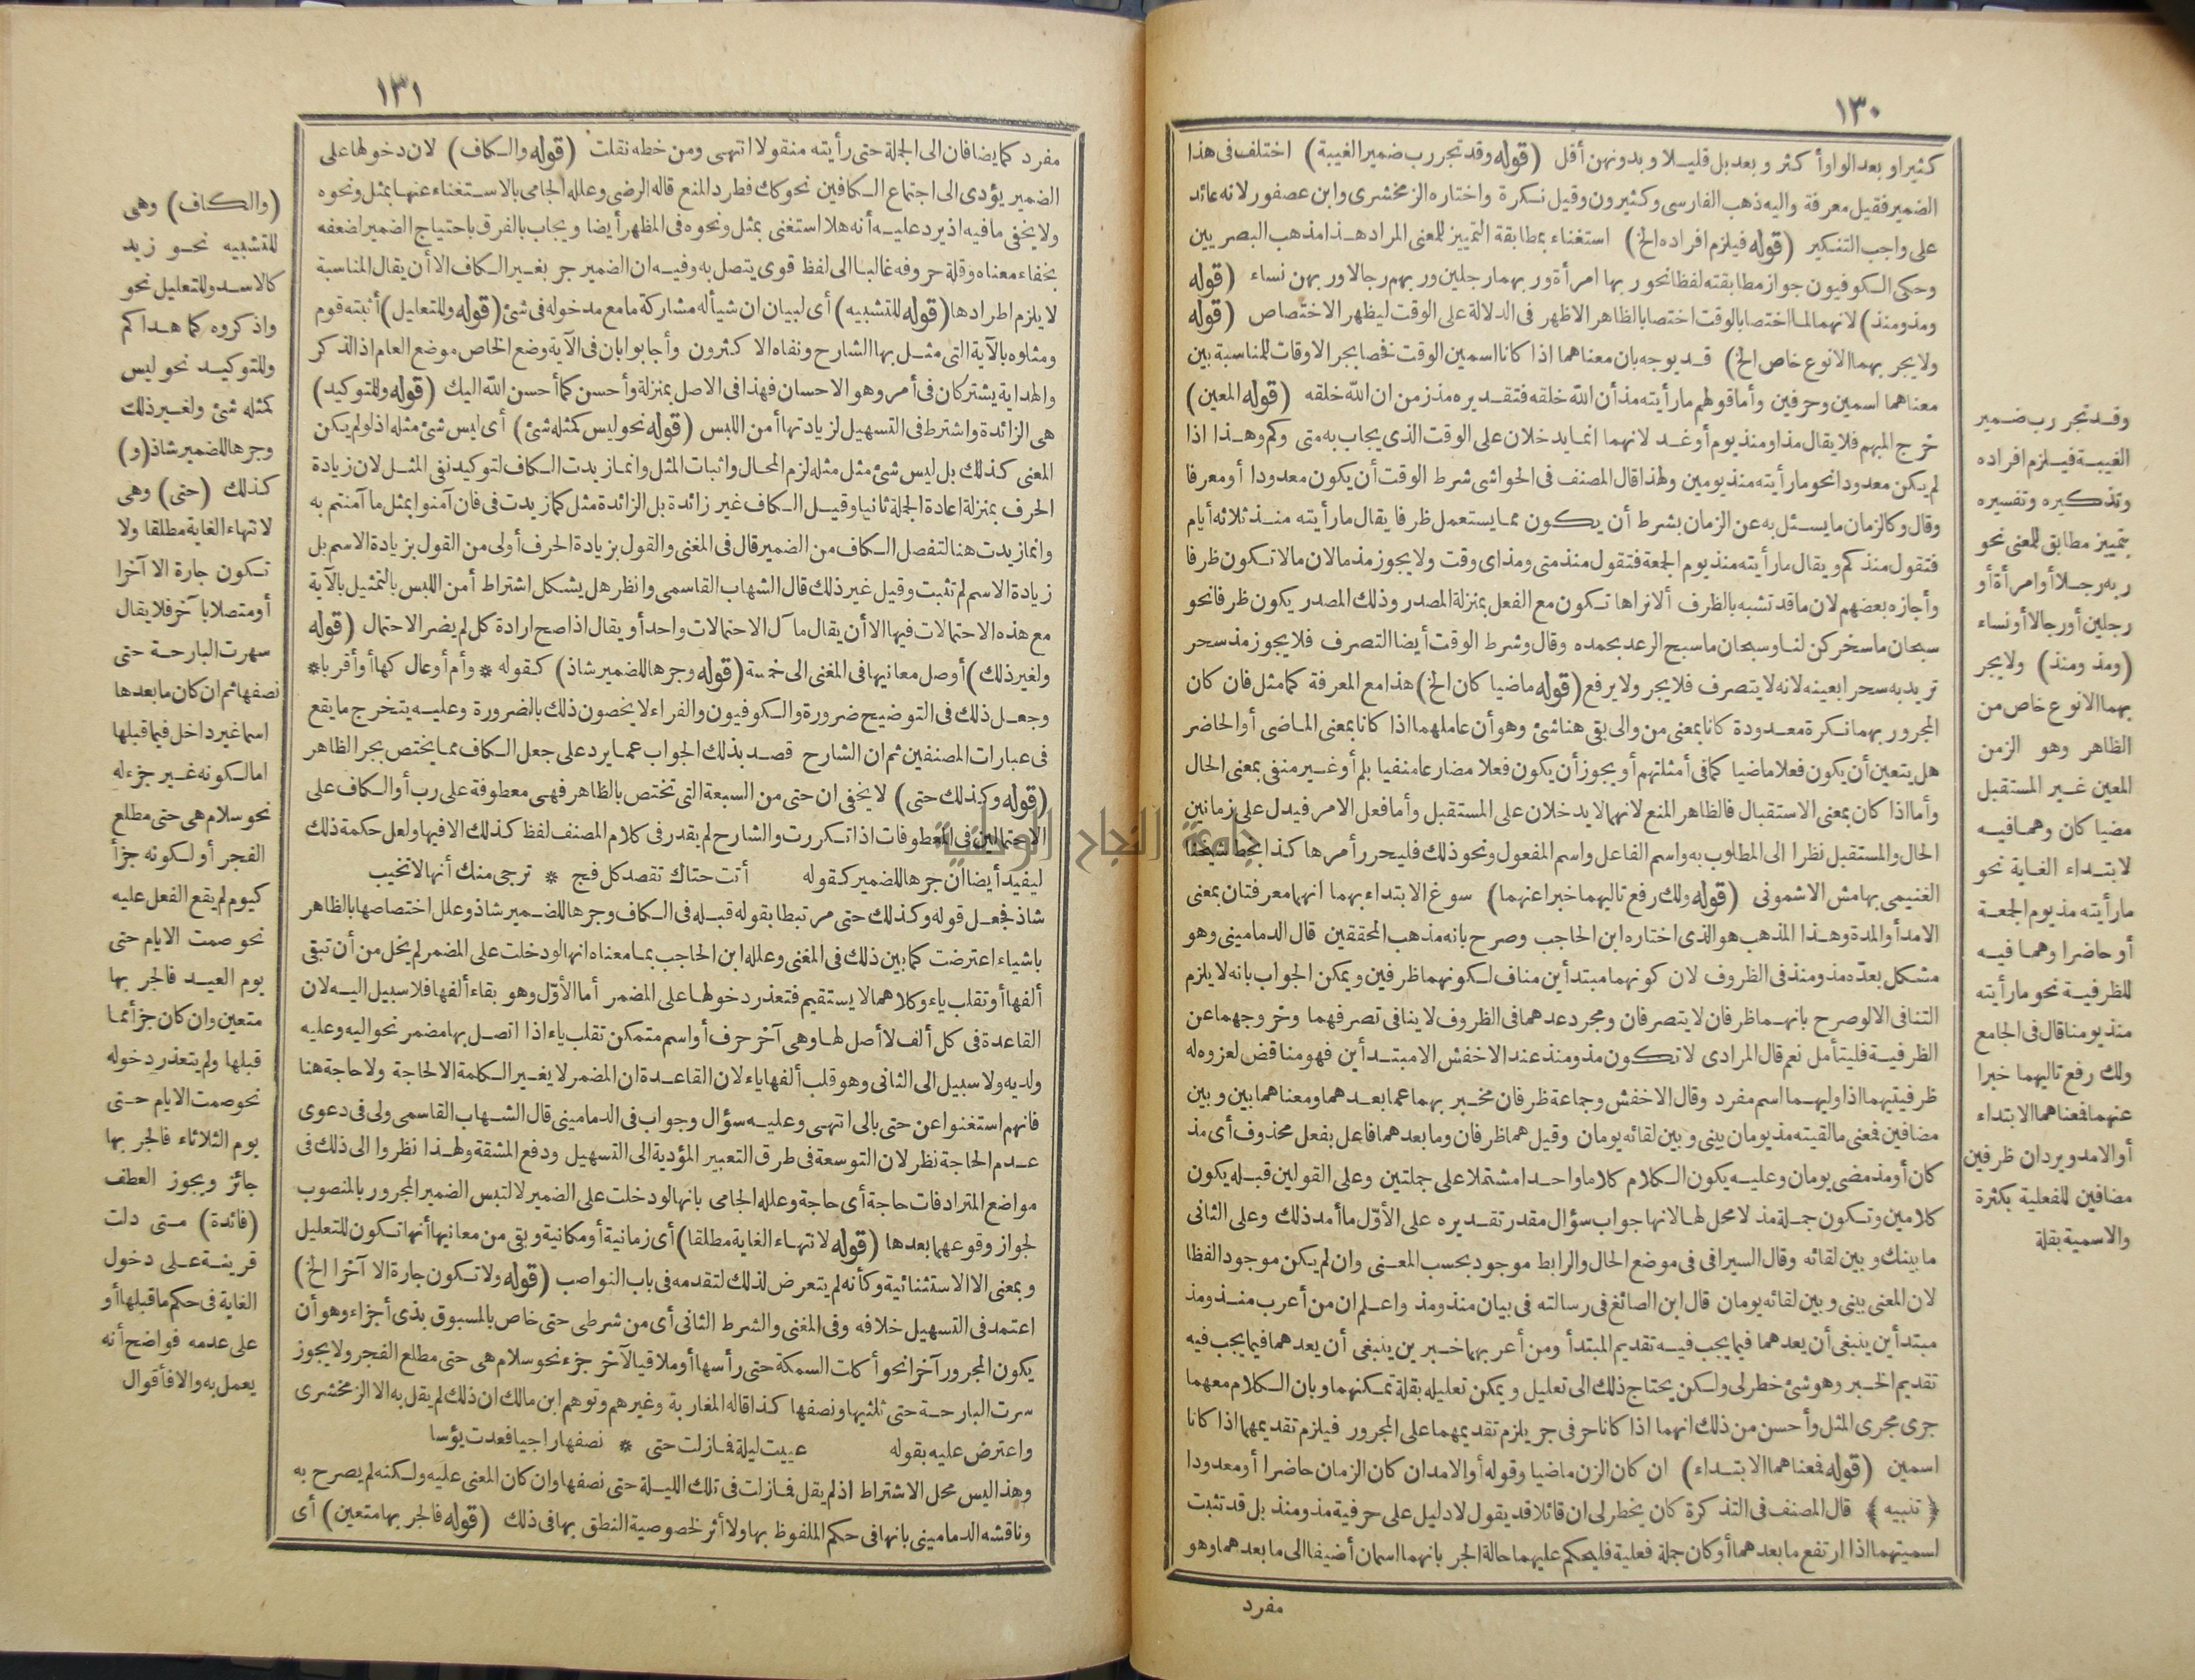 ١٣٠
كثيرا وبعد الواو أكثر وبعد بل قليلا وبدونهن أقل (قوله وقد تجر رب ضمير الغيبة) اختلف فى هذا
الضمير فقيل معرفة واليه ذهب الفارسى وكثيرون وقيل نكرة واختاره الزمخشرى وابن عصفور لانه عائد
على واجب التنكير (قوله فيلزم افراده الخ) استغناء بمطابقة التمييز للمعنى المراد هذا مذهب البصريين
وحكى الكوفيون جواز مطابقته لفظا نحو ربها امرأة وربهما رجلين وربهم رجالا وربهن نساء (قوله
ومذ ومنذ) لانهما لما اختصا بالوقت اختصا بالظاهر الاظهر فى الدلالة على الوقت ليظهر الاختصاص (قوله
ولا يجر بهما الا نوع خاص الخ) قد يوجه بان معناهما اذا كانا اسمين الوقت نخصا بجر الاوقات للمناسبة بين
معناهما اسمين وحرفين وأما قولهم ما رأيته مذ أن الله خلقه فتقديره مذ زمن ان الله خلقه (قوله المعين)
خرج المبهم فلا يقال مذ او منذ يوم أو غد لانهما انما يدخلان على الوقت الذى يجاب به متى وكم وهذا اذا
لم يكن معدودا نحو ما رأيته منذ يومين ولهذا قال المصنف فى الحواشى شرط الوقت أن يكون معدودا أو معرفا
وقال وكالزمان ما يسئل به عن الزمان بشرط أن يكون مما يستعمل ظرفا يقال ما رأيته منذ ثلاثه أيام
فتقول منذ كم ويقال ما رأيته منذ يوم الجمعة فتقول منذ متى ومذ اى وقت ولا يجوز مذ ما لان ما لا تكون ظرفا
وأجازه بعضهم لان ما قد تشبه بالظرف ألا تراها تكون مع الفعل بمنزلة المصدر وذلك المصدر يكون ظرفا نحو
سبحان ما سخركن لنا وسبحان ما سبح الرعد بحمده وقال وشرط الوقت أيضا التصرف فلا يجوز مذ سحر
تريد به سحرا بعينه لانه لا يتصرف فلا يجر ولا يرفع (قوله ماضيا كان الخ) هذا مع المعرفة كما مثل فان كان
المجرور بهما نكرة معدودة كانا بمعنى من والى بقى هنا شئ وهو أن عاملهما اذا كانا بمعنى الماضى أو الحاضر
هل يتعين أن يكون فعلا ماضيا كما فى أمثلتهم أو يجوز أن يكون فعلا مضارعا منفيا بلم أو غير منفى بمعنى الحال
وأما اذا كان بمعنى الاستقبال فالظاهر المنع لانهما لا يدخلان على المستقبل وأما فعل الامر فيدل على زمانين
الحال والمستقبل نظرا الى المطلوب به واسم الفاعل واسم المفعول ونحو ذلك فليحرر أمرها كذا بخط شيخنا
الغنيمى بهامش الاشمونى (قوله ولك رفع تاليهما خبرا عنهما) سوغ الابتداء بهما انهما معرفتان بمعنى
الامد أو المدة وهذا المذهب هو الذى اختاره ابن الحاجب وصرح بانه مذهب المحققين قال الدمامينى وهو
مشكل بعدّه مذ ومنذ فى الظروف لان كونهما مبتدأين مناف لكونهما ظرفين ويمكن الجواب بانه لا يلزم
التنافى الا لو صرح بانهما ظرفان لا يتصرفان ومجرد عدهما فى الظروف لا ينافى تصرفهما وخروجهما عن
الظرفية فليتأمل نعم قال المرادى لا تكون مذ ومنذ عند الاخفش الا مبتدأين فهو مناقض لعزوه له
ظرفيتهما اذا وليهما اسم مفرد وقال الاخفش وجماعة ظرفان مخبر بهما عما بعدهما ومعناهما بين وبين
مضافين فمعنى ما لقيته مذ يومان بينى وبين لقائه يومان وقيل هما ظرفان وما بعدهما فاعل بفعل محذوف أى مذ
كان أو مذ مضى يومان وعليه يكون الكلام كلاما واحدا مشتملا على جملتين وعلى القولين قبله يكون
كلامين وتكون جملة مذ لا محل لها لانها جواب سؤال مقدر تقديره على الأوّل ما أمد ذلك وعلى الثانى
ما بينك وبين لقائه وقال السيرافى فى موضع الحال والرابط موجود بحسب المعنى وان لم يكن موجودا لفظا
لان المعنى بينى وبين لقائه يومان قال ابن الصائغ فى رسالته فى بيان منذ ومذ واعلم ان من أعرب منذ ومذ
مبتدأين ينبغى أن يعدهما فيما يجب فيه تقديم المبتدأ ومن أعربهما خبرين ينبغى أن يعدهما فيما يجب فيه
تقديم الخبر وهو شئ خطر لى ولكن يحتاج ذلك الى تعليل ويمكن تعليله بقلة تمكنهما وبان الكلام معهما
جرى مجرى المثل وأحسن من ذلك انهما اذا كانا حرفى جر يلزم تقديمهما على المجرور فيلزم تقديمهما اذا كانا
اسمين (قوله فمعناهما الابتداء) ان كان الزن ماضيا وقوله أو الامد ان كان الزمان حاضرا أو معدودا
﴿تنبيه﴾ قال المصنف فى التذكرة كان يخطر لى ان قائلا قد يقول لا دليل على حرفية مذ ومنذ بل قد تثبت
اسميتهما اذا ارتفع ما بعدهما أو كان جملة فعلية فليحكم عليهما حالة الجر بانهما اسمان أضيفا الى ما بعدهما وهو
مفرد
وقد تجر رب ضمير
الغيبة فيلزم افراده
وتذكيره وتفسيره
بتمييز مطابق للمعنى نحو
ربه رجلا أو امرأة أو
رجلين أو رجالا أو نساء
(ومذ ومنذ) ولا يجر
بهما الا نوع خاص من
الظاهر وهو الزمن
المعين غير المستقبل
مضيا كان وهما فيه
لابتداء الغاية نحو
ما رأيته مذ يوم الجمعة
أو حاضرا وهما فيه
للظرفية نحو ما رأيته
منذ يومنا قال فى الجامع
ولك رفع تاليهما خبرا
عنهما فمعناهما الابتداء
أو الامد ويردان ظرفين
مضافين للفعلية بكثرة
والاسمية بقلة
١٣١
مفرد كما يضافان الى الجملة حتى رأيته منقولا انتهى ومن خطه نقلت (قوله والكاف) لان دخولها على
الضمير يؤدى الى اجتماع الكافين نحو كك فطرد المنع قاله الرضى وعلله الجامى بالاستغناء عنها بمثل ونحوه
ولا يخفى ما فيه اذ يرد عليه أنه هلا استغنى بمثل ونحوه فى المظهر أيضا ويجاب بالفرق باحتياج الضمير اضعفه
بخفاء معناه وقلة حروفه غالبا الى لفظ قوى يتصل به وفيه ان الضمير جر بغير الكاف الا أن يقال المناسبة
لا يلزم اطرادها (قوله للتشبيه) أى لبيان ان شيأ له مشاركة ما مع مدخوله فى شئ (قوله وللتعليل) أثبته قوم
ومثلوه بالآية التى مثل بها الشارح ونفاه الاكثرون وأجابوا بان فى الآية وضع الخاص موضع العام اذ الذكر
والهداية يشتركان فى أمر وهو الاحسان فهذا فى الاصل بمنزلة وأحسن كما أحسن الله اليك (قوله وللتوكيد)
هى الزائدة واشترط فى التسهيل لزيادتها أمن اللبس (قوله نحو ليس كمثله شئ) أى ليس شئ مثله اذ لو لم يكن
المعنى كذلك بل ليس شئ مثل مثله لزم المحال واثبات المثل وانما زيدت الكاف لتوكيد نفى المثل لان زيادة
الحرف بمنزلة اعادة الجملة ثانيا وقيل الكاف غير زائدة بل الزائدة مثل كما زيدت فى فان آمنوا بمثل ما آمنتم به
وانما زيدت هنا لتفصل الكاف من الضمير قال فى المغنى والقول بزيادة الحرف أولى من القول بزيادة الاسم بل
زيادة الاسم لم تثبت وقيل غير ذلك قال الشهاب القاسمى وانظر هل يشكل اشتراط أمن اللبس بالتمثيل بالآية
مع هذه الاحتمالات فيها الا أن يقال مآل الاحتمالات واحد أو يقال اذا صح ارادة كل لم يضر الاحتمال (قوله
ولغير ذلك) أوصل معانيها فى المغنى الى خمسة (قوله وجرها للضمير شاذ) كقوله * وأم أوعال كها أو أقربا *
وجعل ذلك فى التوضيح ضرورة والكوفيون والفراء لا يخصون ذلك بالضرورة وعليه يتخرج ما يقع
فى عبارات المصنفين ثم ان الشارح قصد بذلك الجواب عما يرد على جعل الكاف مما يختص بجر الظاهر
(قوله وكذلك حتى) لا يخفى ان حتى من السبعة التى تختص بالظاهر فهى معطوفة على رب أو الكاف على
الاحتمالين فى المعطوفات اذا تكررت والشارح لم يقدر فى كلام المصنف لفظ كذلك الا فيها ولعل حكمة ذلك
ليفيد أيضا ان جرها للضمير كقوله أتت حتاك تقصد كل فج * ترجى منك أنها لا تخيب
شاذ فجعل قوله وكذلك حتى مرتبطا بقوله قبله فى الكاف وجرها للضمير شاذ وعلل اختصاصها بالظاهر
باشياء اعترضت كما بين ذلك فى المغنى وعلله ابن الحاجب بما معناه انها لو دخلت على المضمر لم يخل من أن تبقى
ألفها أو تقلب ياء وكلاهما لا يستقيم فتعذر دخولها على المضمر أما الأوّل وهو بقاء ألفها فلا سبيل اليه لان
القاعدة فى كل ألف لا أصل لها وهى آخر حرف أو اسم متمكن تقلب ياء اذا اتصل بها مضمر نحو اليه وعليه
ولديه ولا سبيل الى الثانى وهو قلب ألفها ياء لان القاعدة ان المضمر لا يغير الكلمة الا لحاجة ولا حاجة هنا
فانهم استغنوا عن حتى بالى انتهى وعليه سؤال وجواب فى الدمامينى قال الشهاب القاسمى ولى فى دعوى
عدم الحاجة نظر لان التوسعة فى طرق التعبير المؤدية الى التسهيل ودفع المشقة ولهذا نظروا الى ذلك فى
مواضع المترادفات حاجة أى حاجة وعلله الجامى بانها لو دخلت على الضمير لالتبس الضمير المجرور بالمنصوب
لجواز وقوعهما بعدها (قوله لانتهاء الغاية مطلقا) أى زمانية أو مكانية وبقى من معانيها أنها تكون للتعليل
وبمعنى الا الاستثنائية وكأنه لم يتعرض لذلك لتقدمه فى باب النواصب (قوله ولا تكون جارة الا آخرا الخ)
اعتمد فى التسهيل خلافه وفى المغنى والشرط الثانى أى من شرطى حتى خاص بالمسبوق بذى أجزاء وهو أن
يكون المجرور آخرا نحو أكلت السمكة حتى رأسها أو ملاقيا لآخر جزء نحو سلام هى حتى مطلع الفجر ولا يجوز
سرت البارحة حتى ثلثيها ونصفها كذا قاله المغاربة وغيرهم وتوهم ابن مالك ان ذلك لم يقل به الا الزمخشرى
واعترض عليه بقوله عينت ليلة فما زلت حتى * نصفها راجيا فعدت يؤسا
وهذا ليس محل الاشتراط اذ لم يقل فما زلت فى تلك الليلة حتى نصفها وان كان المعنى عليه ولكنه لم يصرح به
وناقشه الدمامينى بانها فى حكم الملفوظ بها ولا أثر لخصوصية النطق بها فى ذلك (قوله فالجر بها متعين) أى
(والكاف) وهى
للتشبيه نحو زيد
كالاسد وللتعليل نحو
واذكروه كما هداكم
وللتوكيد نحو ليس
كمثله شئ ولغير ذلك
وجرها للضمير شاذ (و)
كذلك (حتى) وهى
لانتهاء الغاية مطلقا ولا
تكون جارة الا آخرا
أو متصلا بآخر فلا يقال
سهرت البارحة حتى
نصفها ثم ان كان ما بعدها
اسما غير داخل فيما قبلها
اما لكونه غير جزء له
نحو سلام هى حتى مطلع
الفجر أو لكونه جزأ
كيوم لم يقع الفعل عليه
نحو صمت الايام حتى
يوم العيد فالجر بها
متعين وان كان جزأ مما
قبلها ولم يتعذر دخوله
نحو صمت الايام حتى
يوم الثلاثاء فالجر بها
جائز ويجوز العطف
(فائدة) متى دلت
قرينة على دخول
الغاية فى حكم ما قبلها أو
على عدمه فواضح أنه
يعمل به والا فأقوال
جامعة النجاح الوطنية